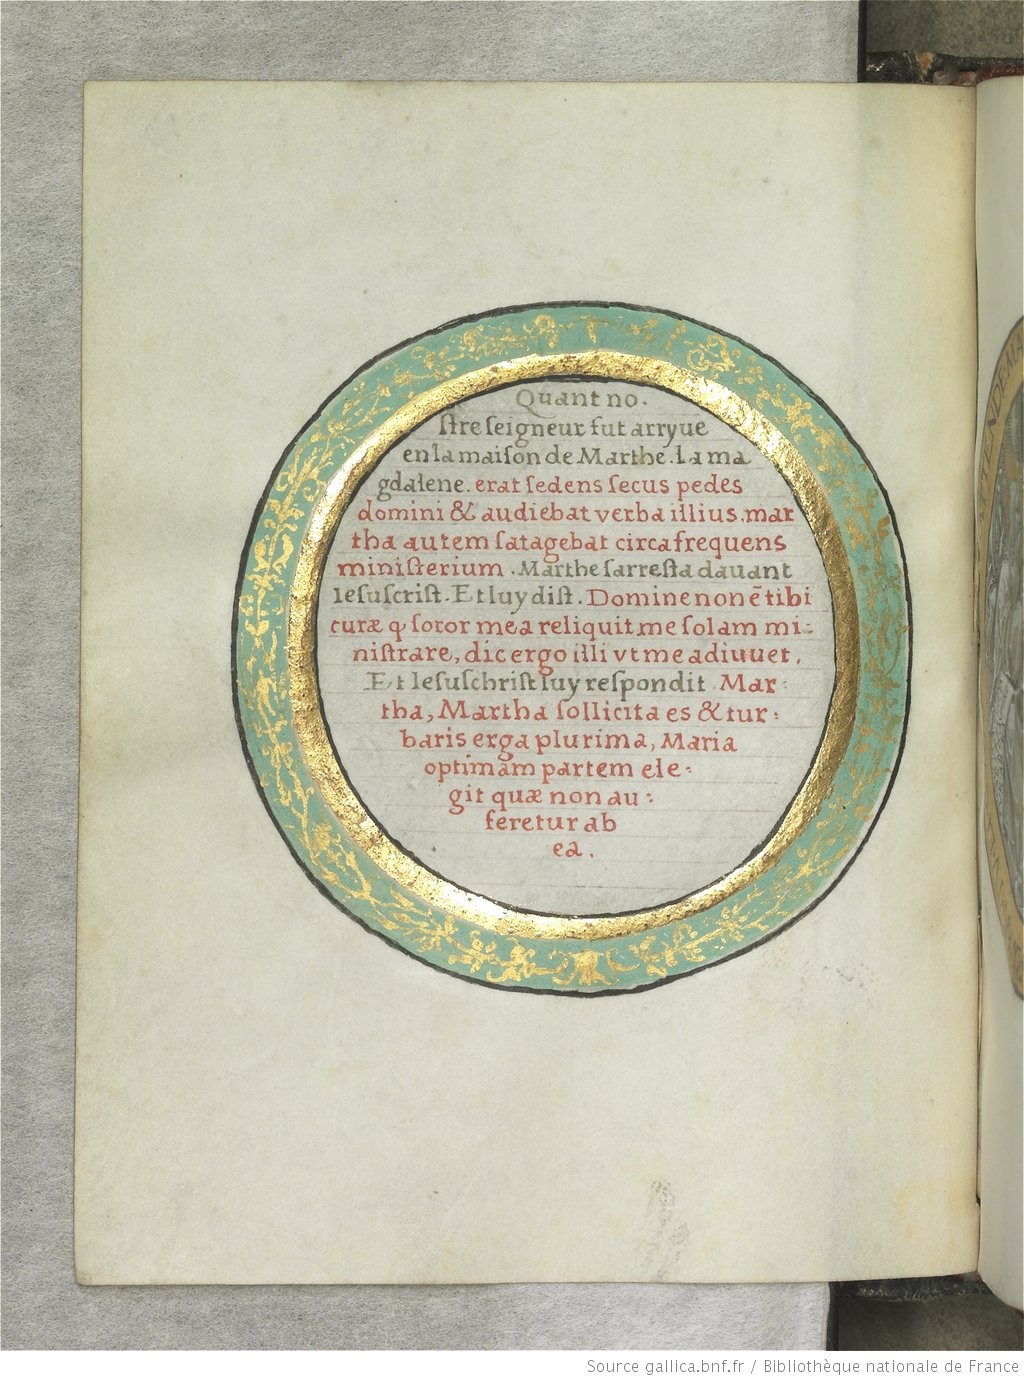 Quant no.
ſtre ſeigneur fut arryue
en la maiſon de Marthe. La ma
gdalene. erat ſedens ſecus pedes
domini & audiebat verba illius. mar
tha autem ſatagebat circa frequens
miniſterium. Marthe ſarreſta dauant
Ieſuſcriſt. Et luy diſt. Domine non ē tibi
curæ ꝙ ſoror mea reliquit me ſolam mi:
niſtrare, dic ergo illi vt me adiuuet.
Et Ieſuſchriſt luy reſpondit. Mar:
tha, Martha ſollicita es & tur:
baris erga plurima, Maria
optimam partem ele:
git quæ non au:
feretur ab
ea.
Source gallica.bnf.fr / Bibliothèque nationale de France